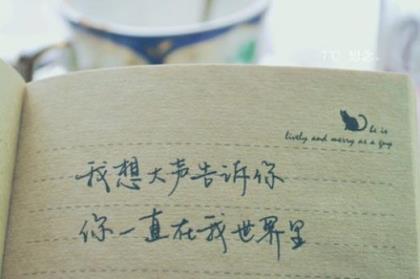 7℃ 想念.
he is
lively and merry as a guy
我想大声告诉你
你一直在我世界里